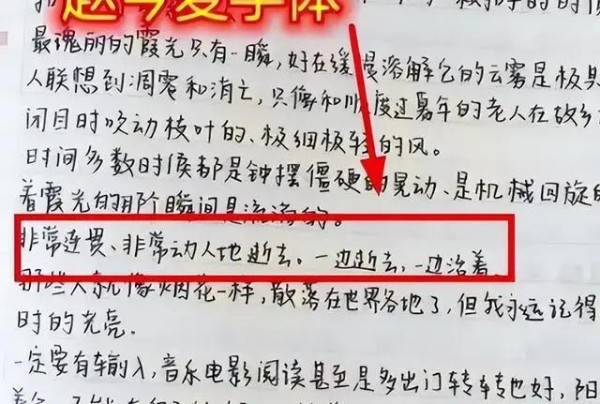 赵今麦字体
最瑰丽的霞光只有一瞬,好在缓慢溶解它的云雾是极具
人联想到凋零和消亡,只像和顺度过暮年的老人在故乡
闭目时吹动枝叶的、极细极轻的风。
时间多数时候都是钟摆僵硬的晃动、是机械回旋的
着霞光的那个瞬间是流淌的。
非常连贯、非常动人地逝去。一边逝去,一边活着。
那些人就像烟花一样,散落在世界各地了,但我永远记得
时的光亮.
一定要有车前入,音乐电影阅读甚至是多出门转转也好,阳